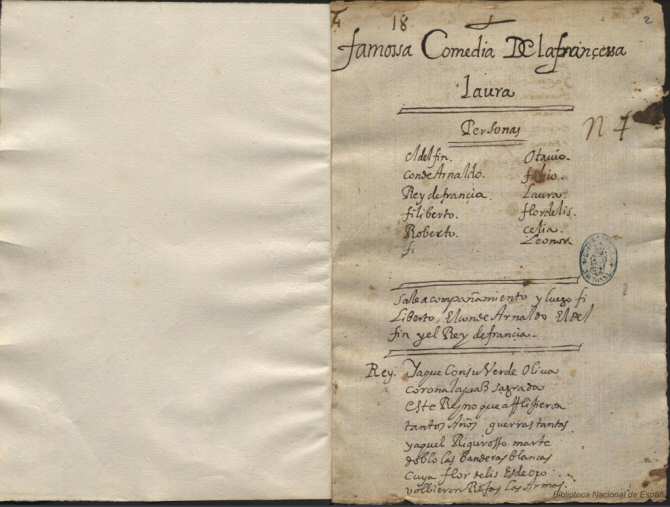 18
2
famossa Comedia De la françessa
laura
Personas
N 7
el delfin.
conde Arnaldo.
Rey de francia.
filiberto.
Roberto.
fi
Otauio.
fabio.
Laura
flordelis.
celia.
Leonora
Sale acompañamiento y luego fi
Liberto, El conde Arnaldo El Del
fin y el Rey de francia.
Rey. Ya que Con su Verde Oliua
corona la paz sagrada
este Reyno que afflixeron
tantos Años guerras tantas
y aquel Riguroso marte
doblo las banderas blancas
cuya flor de lis es de oro
volbieron Rosas las Armas.
Biblioteca Nacional de España